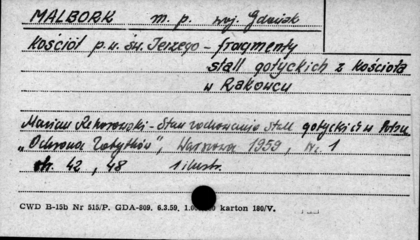 MALBORK m. p. woj. Gdańsk
Kościół p.w. św. Jerzego - fragmenty
stall gotyckich z kościoła
w Rakowcu
Marian Rehorowski - Stan zachowania stall gotyckich w Polsce
"Ochrona Zabytków", Warszawa 1959, Nr. 1
str. 42, 48 1 ilustr.
CWD B-15b Nr 515/P. GDA-809. 6.3.59. karton 180/V.